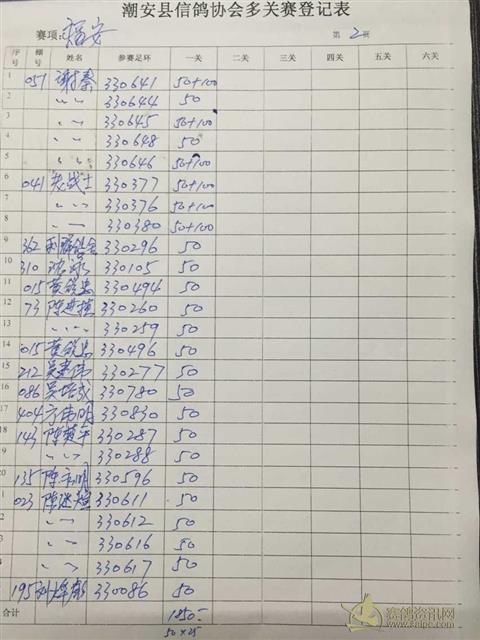 潮安县信鸽协会多关赛登记表
赛项: 福安 第 2 页
序号 棚号 姓名 参赛足环 一关 二关 三关 四关 五关 六关
1 051 谢秦 330641 50+100
2 〃 〃 330644 50
3 〃 〃 330645 50+100
4 〃 〃 330648 50
5 〃 〃 330646 50+100
6 041 老战士 330377 50+100
7 〃 〃 330376 50+100
8 〃 〃 330380 50+100
9 362 利群鸽舍 330296 50
10 310 330105 50
11 015 黄 330494 50
12 73 陈 330260 50
13 〃 〃 330259 50
14 015 黄 330496 50
15 212 吴 伟 330277 50
16 086 吴培成 330780 50
17 404 方伟明 330830 50
18 143 陈 平 330287 50
19 〃 〃 330288 50
20 135 陈 明 330596 50
1 023 陈 330611 50
2 〃 〃 330612 50
3 〃 〃 330616 50
4 〃 〃 330617 50
195 刘 彬 330086 50
合计 1850-
50×25
赛鸽资讯网
www.saige.com